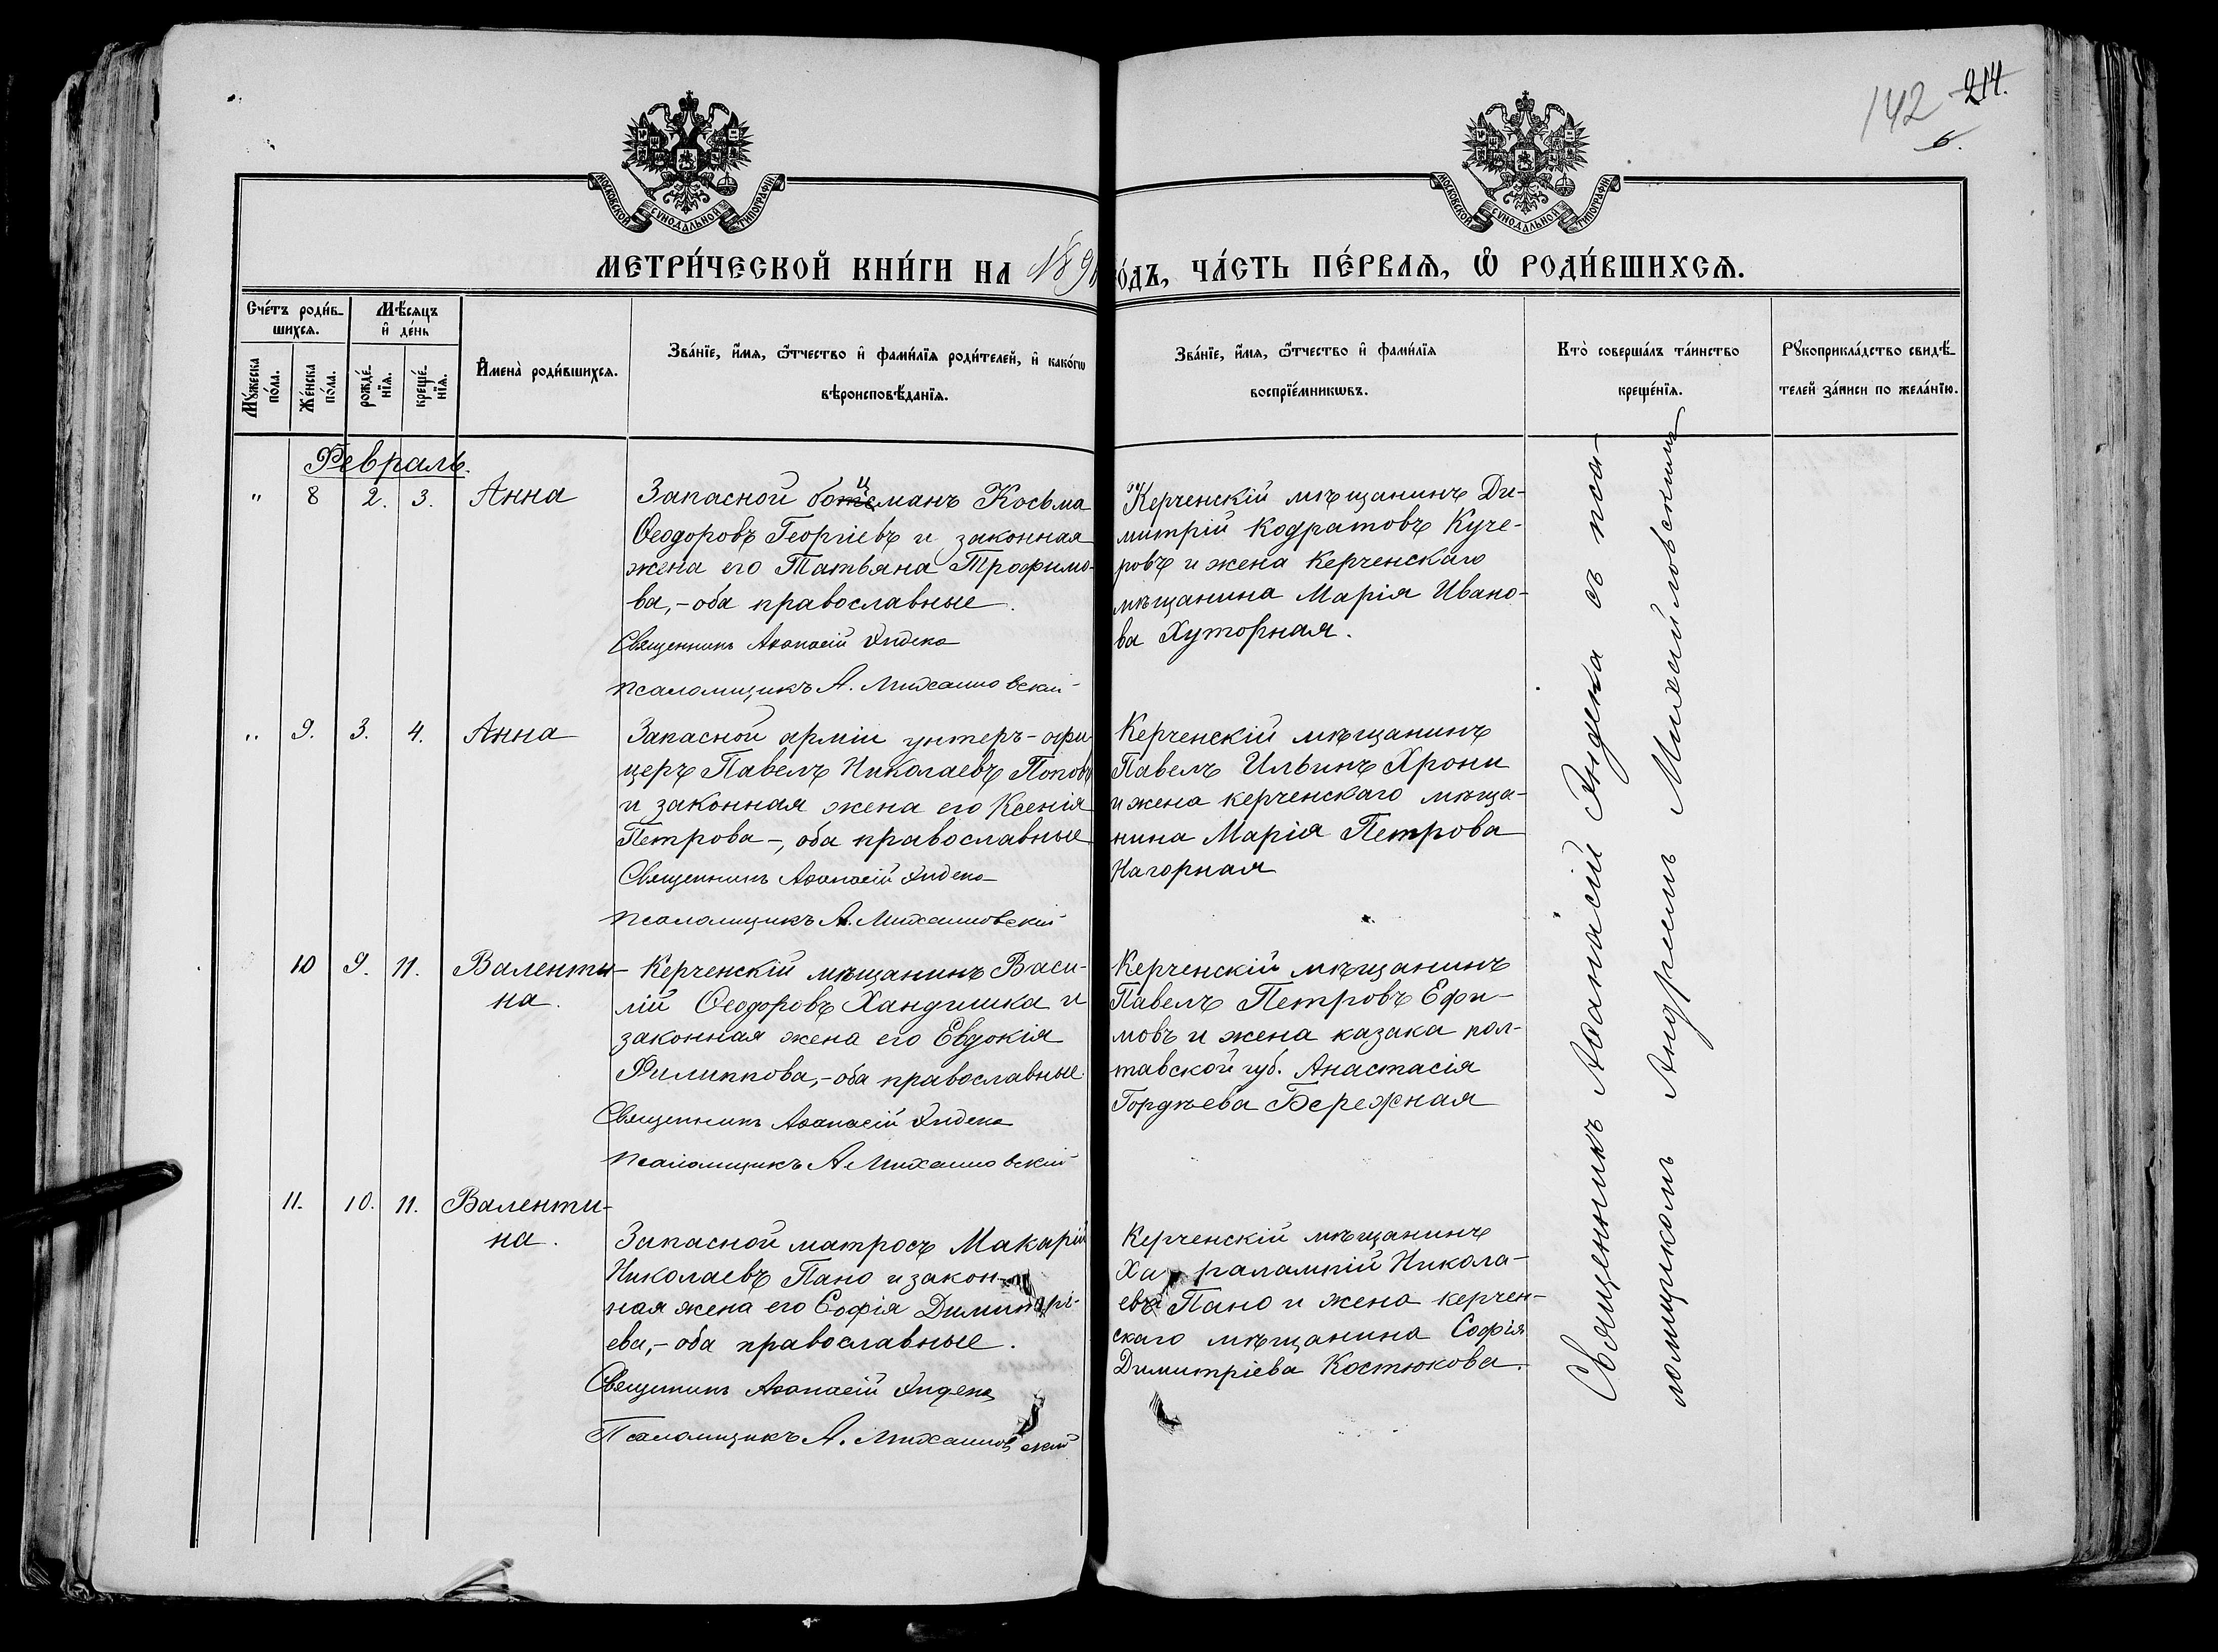 142 214.
6.
МОСКОВСКОЙ СѴНОДАЛЬНОЙ ТИПОГРАФІИ
МОСКОВСКОЙ СѴНОДАЛЬНОЙ ТИПОГРАФІИ
МЕТРИ́ЧЕСКОЙ КНИ́ГИ НА 189
О́ДЪ, ЧА́СТЬ ПЕ́РВАѦ, Ѽ РОДИ́ВШИХСѦ.
Сче́тъ роди́в-
шихсѧ.
Мѣ́сѧцъ
и҆ де́нь
Мꙋ́жеска
по́ла.
Же́нска
по́ла.
рожде́-
нїѧ.
креще́-
нїѧ.
И҆мена̀ роди́вшихсѧ.
Зва́нїе, и҆́мѧ, ѻ҆́тчество и҆ фами́лїѧ роди́телей, и҆ како́гѡ
вѣроисповѣ́данїѧ.
Зва́нїе, и҆́мѧ, ѻ҆́тчество и҆ фами́лїѧ
воспрїе́мникѡвъ.
Кто̀ соверша́лъ та́инство
креще́нїѧ.
Рꙋкоприкла́дство свидѣ́-
телей за́писи по жела́нїю.
Февраль.
" 8 2. 3. Анна
Запасной боцманъ Косьма
Ѳеодоровъ Георгіевъ и законная
жена его Татьяна Трофимо-
ва,- оба православные.
Священникъ Аѳанасій Яндека
Псаломщикъ А. Михайловскій
Керченскій мѣщанинъ Ди-
митрій Кодратовъ Куче-
ровъ и жена керченскаго
мѣщанина Марія Ивано-
ва Хуторная.
" 9. 3. 4. Анна
Запасной арміи унтеръ-офи
церъ Павелъ Николаевъ Поповъ
и законная жена его Ксенія
Петрова-, оба православные
Священникъ Аѳанасій Яндека
Псаломщикъ А. Михайловскій
Керченскій мѣщанинъ
Павелъ Ильинъ Хрони
и жена керченскаго мѣща-
нина Марія Петрова
Нагорная
10 9. 11. Валенти-
на.
Керченскій мѣщанинъ Васи-
лій Ѳеодоровъ Хандишка и
законная жена его Евдокія
Филиппова,- оба православные.
Священникъ Аѳанасій Яндека
Псаломщикъ А. Михайловскій
Керченскій мѣщанинъ
Павелъ Петровъ Ефи-
мовъ и жена казака пол-
тавской губ. Анастасія
Гордѣева Бережная
11. 10. 11. Валенти-
на.
Запасной матросъ Макарій
Николаевъ Пано и закон-
ная жена его Софія Димитрі-
ева,- оба православные.
Священникъ Аѳанасій Яндека
Псаломщикъ А. Михайловскій
Керченскій мѣщанинъ
Харалампій Никола-
евъ Пано и жена керчен-
скаго мѣщанина Софія
Димитріева Костюкова.
Священникъ Аѳанасій Яндека съ пса-
ломщикомъ Андреемъ Михайловскимъ